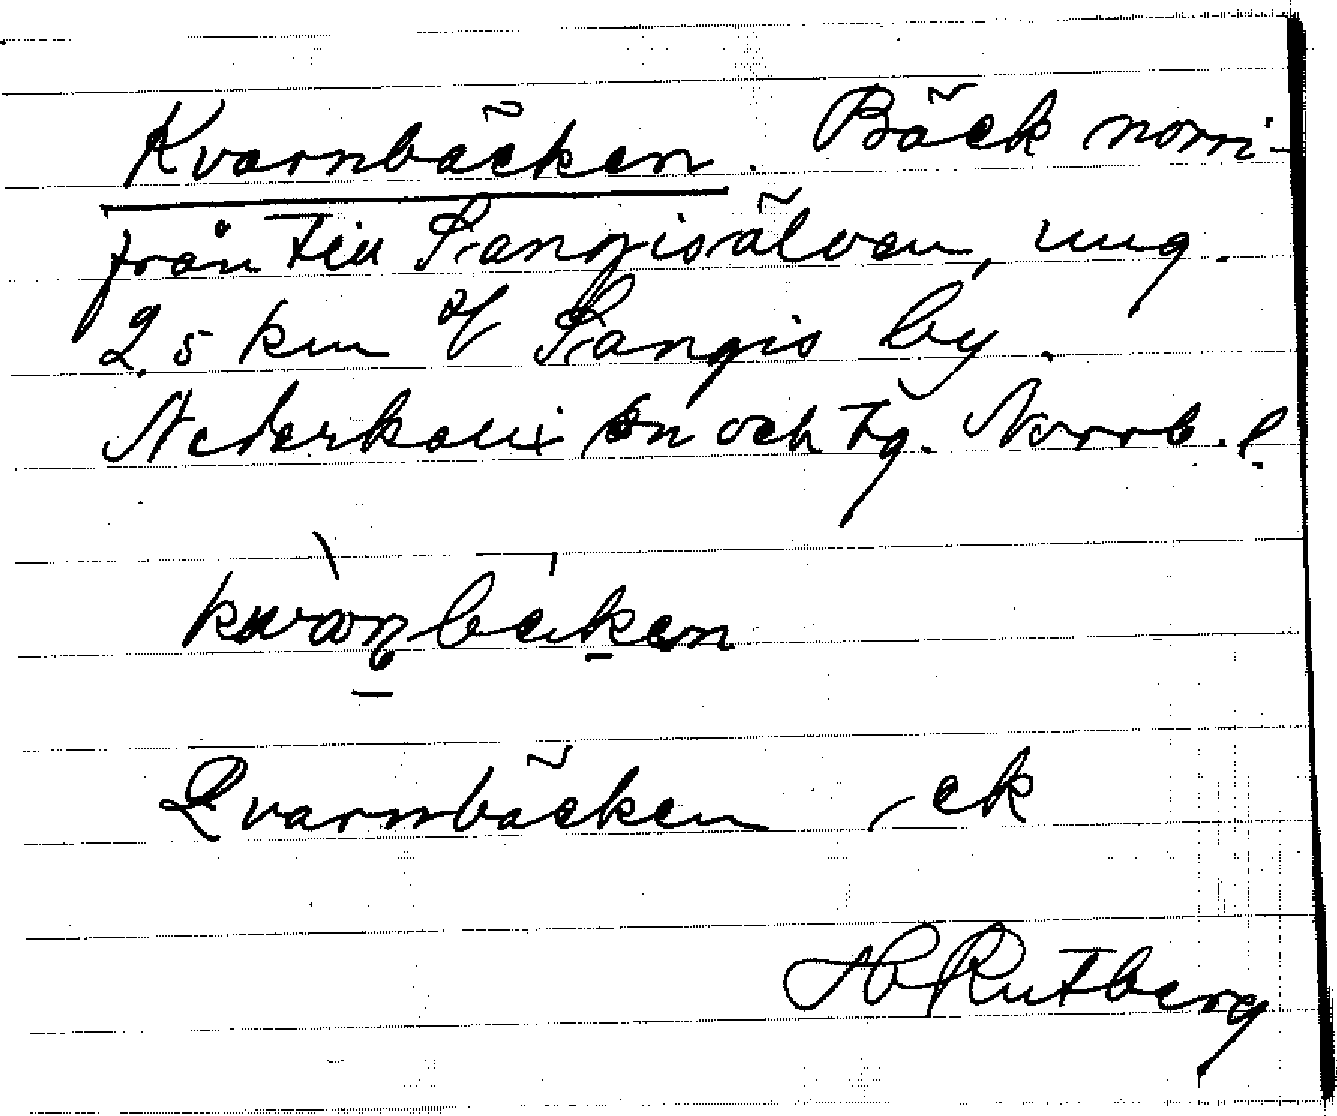 Kvarnbäcken. Bäck norri-
från till Sangisälven, ung.
2,5 km Sangis by.
Nederkalix sn och tg. Norrb. l.
Qvarnbäcken, ek
H Rutberg